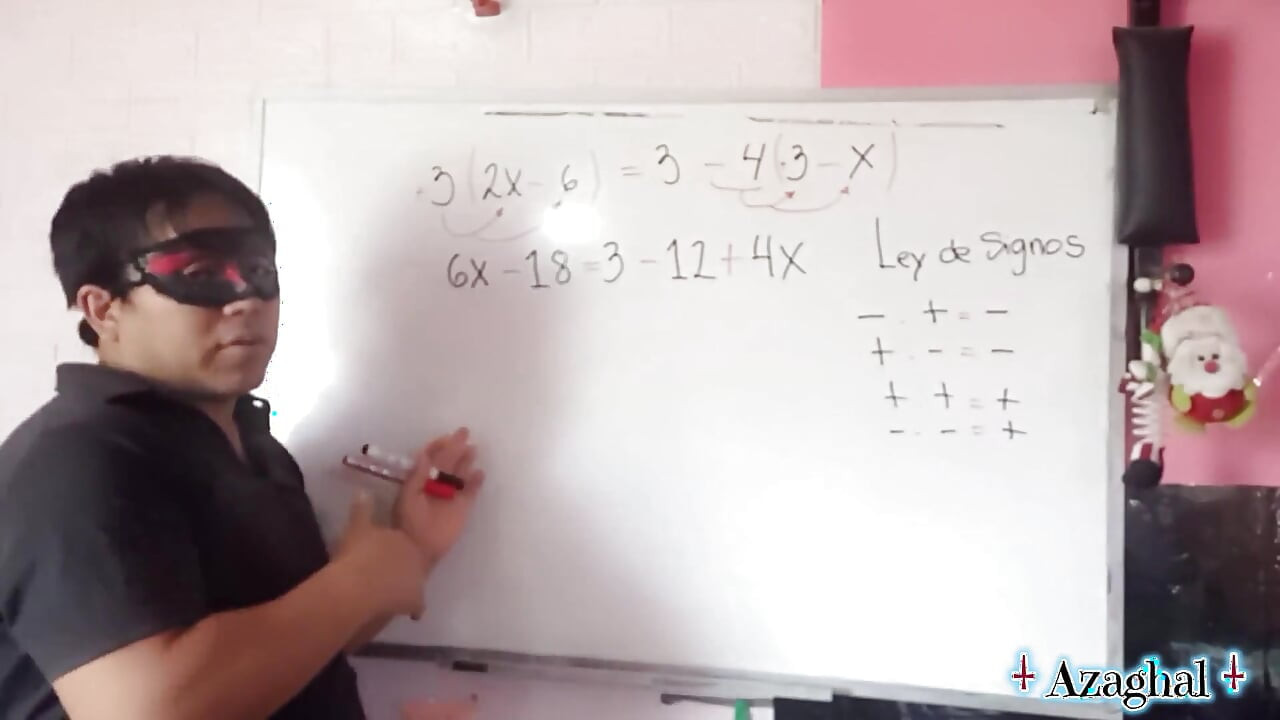 3(2x - 6) = 3 - 4(3 - x)
6x - 18 = 3 - 12 + 4x
Ley de Signos
- . + = -
+ . - = -
+ . + = +
- . - = +
Azaghal